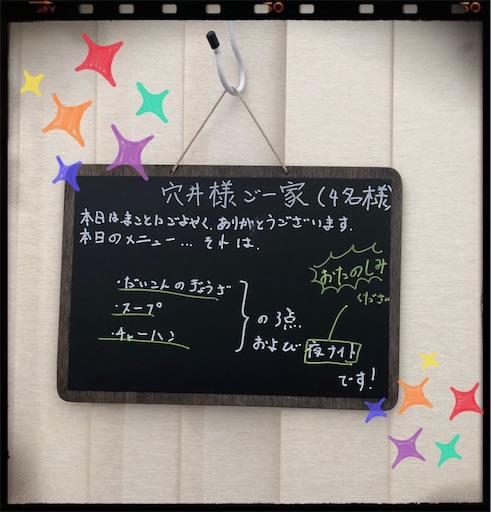 穴井様ご一家(4名様)
本日はまことにごよやく、ありがとうございます。
本日のメニュー… それは、
・だいこんのぎょうざ
・スープ
・チャーハン
の3点
および
夜ナイト
です!
おたのしみ
ください